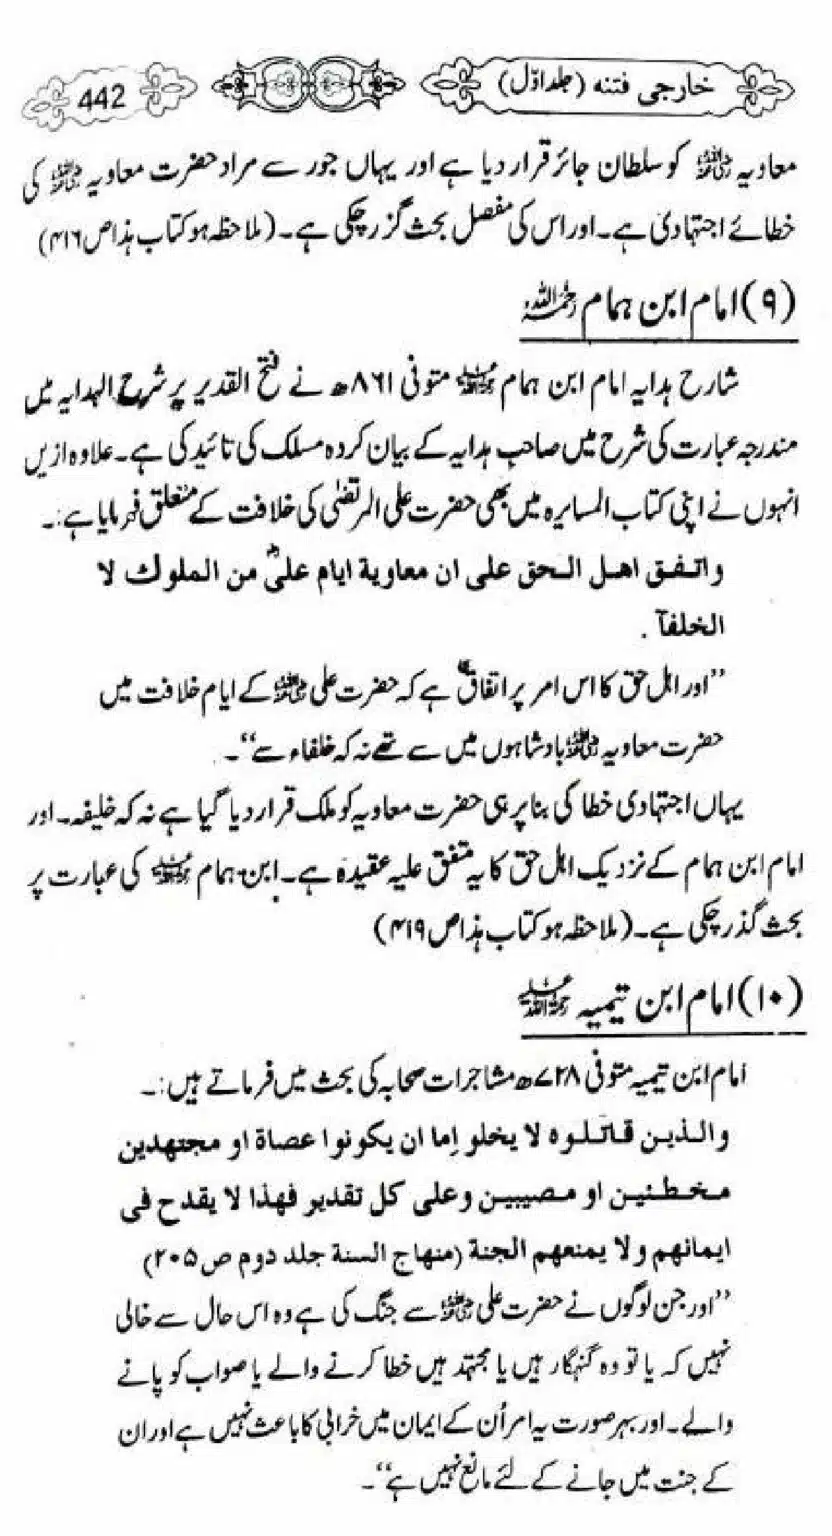 خارجی فتنہ (جلد اوّل)
442
معاویہ رضی اللہ عنہ کو سلطان جائر قرار دیا ہے اور یہاں جور سے مراد حضرت معاویہ رضی اللہ عنہ کی
خطائے اجتہادی ہے۔ اور اس کی مفصل بحث گزر چکی ہے۔ (ملاحظہ ہو کتاب ہذا ص ۴۱۶)
(۹) امام ابن ہمام رحمہ اللہ
شارح ہدایہ امام ابن ہمام رحمۃ اللہ علیہ متوفی ۸۶۱ھ نے فتح القدیر پر شرح الہدایہ میں
مندرجہ عبارت کی شرح میں صاحب ہدایہ کے بیان کردہ مسلک کی تائید کی ہے۔ علاوہ ازیں
انہوں نے اپنی کتاب المسایرہ میں بھی حضرت علی المرتضیٰ کی خلافت کے متعلق فرمایا ہے:۔
واتفق اهل الحق علی ان معاویة ایام علیؓ من الملوک لا
الخلفآ .
”اور اہل حق کا اس امر پر اتفاق ہے کہ حضرت علی رضی اللہ عنہ کے ایام خلافت میں
حضرت معاویہ رضی اللہ عنہ بادشاہوں میں سے تھے نہ کہ خلفاء سے“۔
یہاں اجتہادی خطا کی بنا پر ہی حضرت معاویہ کو ملک قرار دیا گیا ہے نہ کہ خلیفہ۔ اور
امام ابن ہمام کے نزدیک اہل حق کا یہ متفق علیہ عقیدہ ہے۔ ابن ہمام رحمۃ اللہ علیہ کی عبارت پر
بحث گذر چکی ہے۔ (ملاحظہ ہو کتاب ہذا ص ۴۱۹)
(۱۰) امام ابن تیمیہ رحمۃ اللہ علیہ
امام ابن تیمیہ متوفی ۷۲۸ھ مشاجرات صحابہ کی بحث میں فرماتے ہیں:۔
والذین قاتلوه لا یخلو اما ان یکونوا عصاة او مجتهدین
مخطئین او مصیبین وعلی کل تقدیر فهذا لا یقدح فی
ایمانهم ولا یمنعهم الجنة (منهاج السنة جلد دوم ص ۲۰۵)
”اور جن لوگوں نے حضرت علی رضی اللہ عنہ سے جنگ کی ہے وہ اس حال سے خالی
نہیں کہ یا تو وہ گنہگار ہیں یا مجتہد ہیں خطا کرنے والے یا صواب کو پانے
والے۔ اور بہر صورت یہ امر اُن کے ایمان میں خرابی کا باعث نہیں ہے اور ان
کے جنت میں جانے کے لئے مانع نہیں ہے“۔